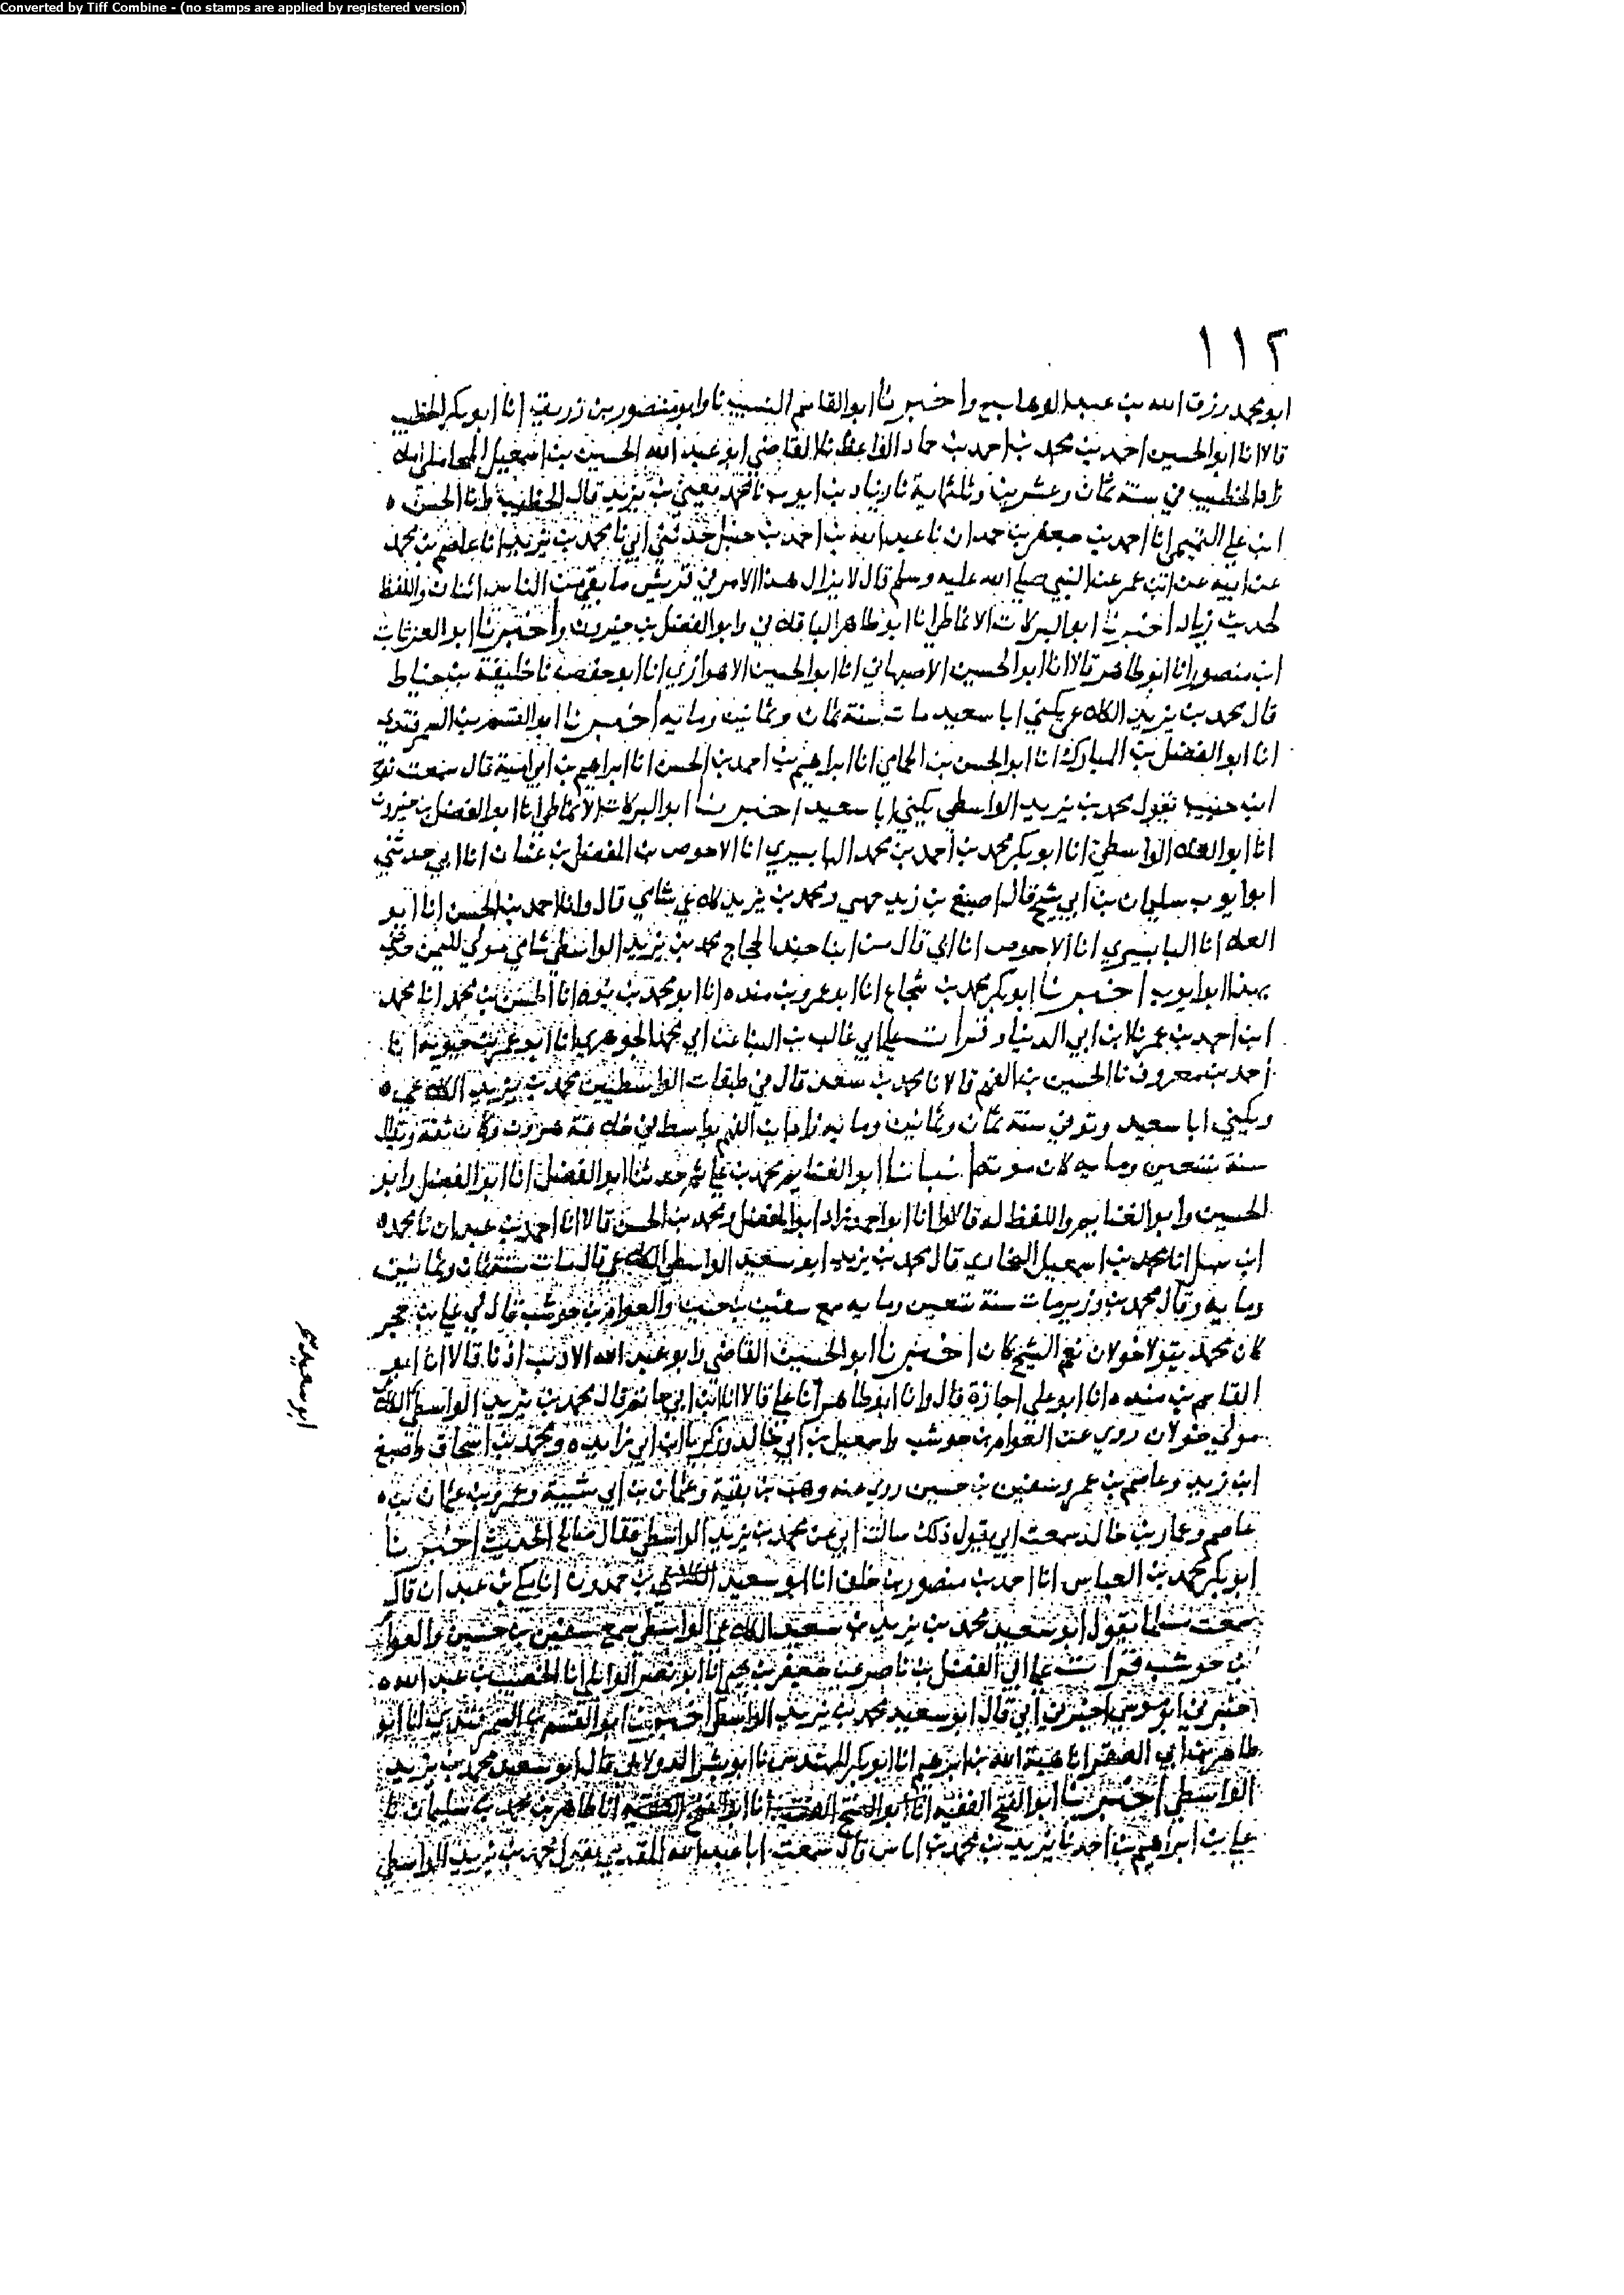 Converted by Tiff Combine - (no stamps are applied by registered version)
١١٢
ابو محمد رزق الله بن عبد الوهاب ح واخبرنا ابو القاسم النسيب نا وابو منصور بن زريق انا ابو بكر الخطيب
قالا انا ابو الحسين احمد بن محمد بن احمد بن حماد الواعظ نا القاضي ابو عبد الله الحسين بن اسمعيل المحاملي املا
زاد الخطيب في سنة ثمان وعشرين وثلثماية نا زياد بن ايوب نا محمد يعني بن يزيد قال الخطيب وانا الحسن
ابن علي التميمي انا احمد بن جعفر بن حمدان نا عبد الله بن احمد بن حنبل حدثني ابي نا محمد بن يزيد انا عاصم بن محمد
عن ابيه عن ابن عمر عن النبي صلى الله عليه وسلم قال لا يزال هذا الامر في قريش ما بقي من الناس اثنان واللفظ
لحديث زياد اخبرنا ابو البركات الانماطي انا ابو طاهر الباقلاني وابو الفضل بن خيرون واخبرنا ابو العز ثابت
ابن منصور انا ابو طاهر قالا انا ابو الحسين الاصبهاني انا ابو الحسين الاهوازي انا ابو حفص نا خليفة بن خياط
قال محمد بن يزيد الكلاعي يكنى ابا سعيد مات سنة ثمان وثمانين وماية اخبرنا ابو القسم بن السمرقندي
انا ابو الفضل بن المبارك انا ابو الحسن بن الحمامي انا ابراهيم بن احمد بن الحسن انا ابراهيم بن ابي امية قال سمعت نوح
ابن حبيب يقول محمد بن يزيد الواسطي يكنى ابا سعيد اخبرنا ابو البركات الانماطي انا ابو الفضل بن خيرون
انا ابو العلا الواسطي انا ابو بكر محمد بن احمد بن محمد البابسيري انا الاحوص بن المفضل بن غسان انا ابي حدثني
ابو ايوب سليمان بن ابي شيخ قال اصبغ بن زيد جهني ومحمد بن يزيد كلاعي شامي قال وانا احمد بن الحسن انا ابو
العلا انا البابسيري انا الاحوص انا ابي قال من ابنا جند الحجاج محمد بن يزيد الواسطي شامي مولى لليمن حدثني
بهذا ابو ايوب اخبرنا ابو بكر محمد بن شجاع انا ابو عمرو بن منده انا ابو محمد بن يوه انا الحسن بن محمد انا محمد
ابن احمد بن عمر نا ابن ابي الدنيا وقرات على ابي غالب بن البنا عن ابي محمد الجوهري انا ابو عمر بن حيويه انا
احمد بن معروف نا الحسين بن الفهم قالا نا محمد بن سعد قال في طبقات الواسطيين محمد بن يزيد الكلاعي
ويكنى ابا سعيد وتوفي سنة ثمان وثمانين وماية زاد ابن الفهم بواسط في خلافة هرون وكان ثقة ويقال
سنة تسعين وماية كان موته انبانا ابو الغنايم محمد بن علي ثم حدثنا ابو الفضل انا ابو الفضل وابو
الحسين وابو الغنايم واللفظ له قالوا انا ابو احمد زاد ابو الفضل ومحمد بن الحسن قالا انا احمد بن عبدان نا محمد
ابن سهل انا محمد بن اسمعيل البخاري قال محمد بن يزيد ابو سعيد الواسطي الكلاعي قال مات سنة ثمان وثمانين
وماية وقال محمد بن وزير مات سنة تسعين وماية سمع سفين بن حسين والعوام بن حوشب قال لي علي بن حجر
كان محمد يتولا خولان نعم الشيخ كان اخبرنا ابو الحسين القاضي وابو عبد الله الاديب اذنا قالا انا ابو
القاسم بن منده انا ابو علي اجازة قال وانا ابو طاهر انا علي قالا انا ابن ابي حاتم قال محمد بن يزيد الواسطي الكلاعي
مولى خولان روى عن العوام بن حوشب واسمعيل بن ابي خالد وزكريا ابن ابي زايده ومحمد بن اسحاق واصبغ
ابن زيد وعاصم بن عمر وسفين بن حسين روى عنه وهب بن بقية وعثمان بن ابي شيبة وعمرو بن عثمان بن
عاصم وعمار بن خالد سمعت ابي يقول ذلك سالت ابي عن محمد بن يزيد الواسطي فقال صالح الحديث اخبرنا
ابو بكر محمد بن العباس انا احمد بن منصور بن خلف انا ابو سعيد بن حمدون انا مكي بن عبدان قال
سمعت مسلما يقول ابو سعيد محمد بن يزيد بن سعيد الكلاعي الواسطي سمع سفين بن حسين والعوام
بن حوشب قرات على ابي الفضل بن ناصر عن جعفر بن يحيى انا ابو نصر الوائلي انا الخصيب بن عبد الله
اخبرني ابو موسى اخبرني ابي قال ابو سعيد محمد بن يزيد الواسطي اخبرنا ابو القسم بن السمرقندي انا ابو
طاهر بن ابي الصقر انا هبة الله بن ابرهيم انا ابو بكر المهندس نا ابو بشر الدولابي قال ابو سعيد محمد بن يزيد
الواسطي اخبرنا ابو الفتح الفقيه انا ابو الفتح الفقيه انا طاهر بن محمد بن سليمان نا
علي بن ابراهيم بن احمد نا يزيد بن محمد بن اياس قال سمعت ابا عبد الله المقدمي يقول محمد بن يزيد الواسطي
ابو سعيد